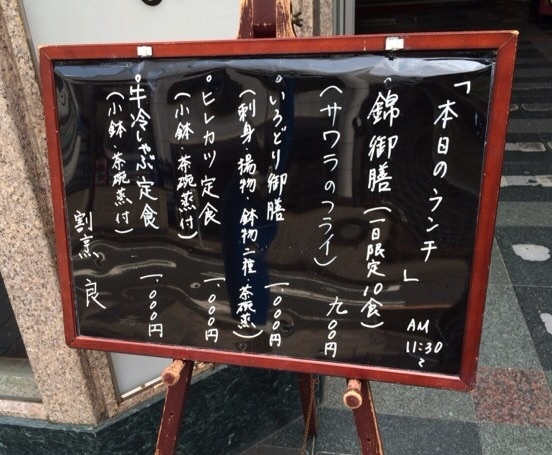 「本日のランチ」
AM
11:30
~
錦御膳(一日限定10食)
(サワラのフライ) 九00円
。いろどり御膳
(刺身・揚物・鉢物二種・茶碗蒸) 一、000円
。ヒレカツ定食
(小鉢・茶碗蒸付) 一、000円
。牛冷しゃぶ定食
(小鉢・茶碗蒸付) 一、000円
割烹 良